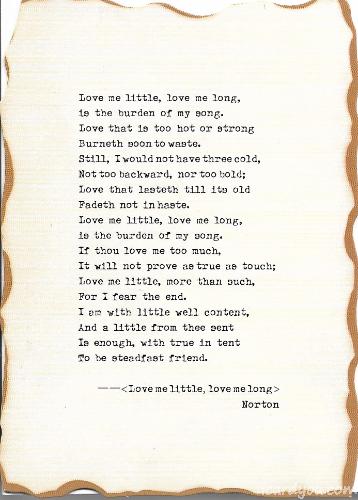 Love me little, love me long,
is the burden of my song.
Love that is too hot or strong
Burneth soon to waste.
Still, I would not have three cold,
Not too backward, nor too bold;
Love that lasteth till its old
Fadeth not in haste.
Love me little, love me long,
is the burden of my song.
If thou love me too much,
It will not prove as true as touch;
Love me little, more than such,
For I fear the end.
I am with little well content,
And a little from thee sent
Is enough, with true in tent
To be steadfast friend.
——<Love me little, love me long>
Norton